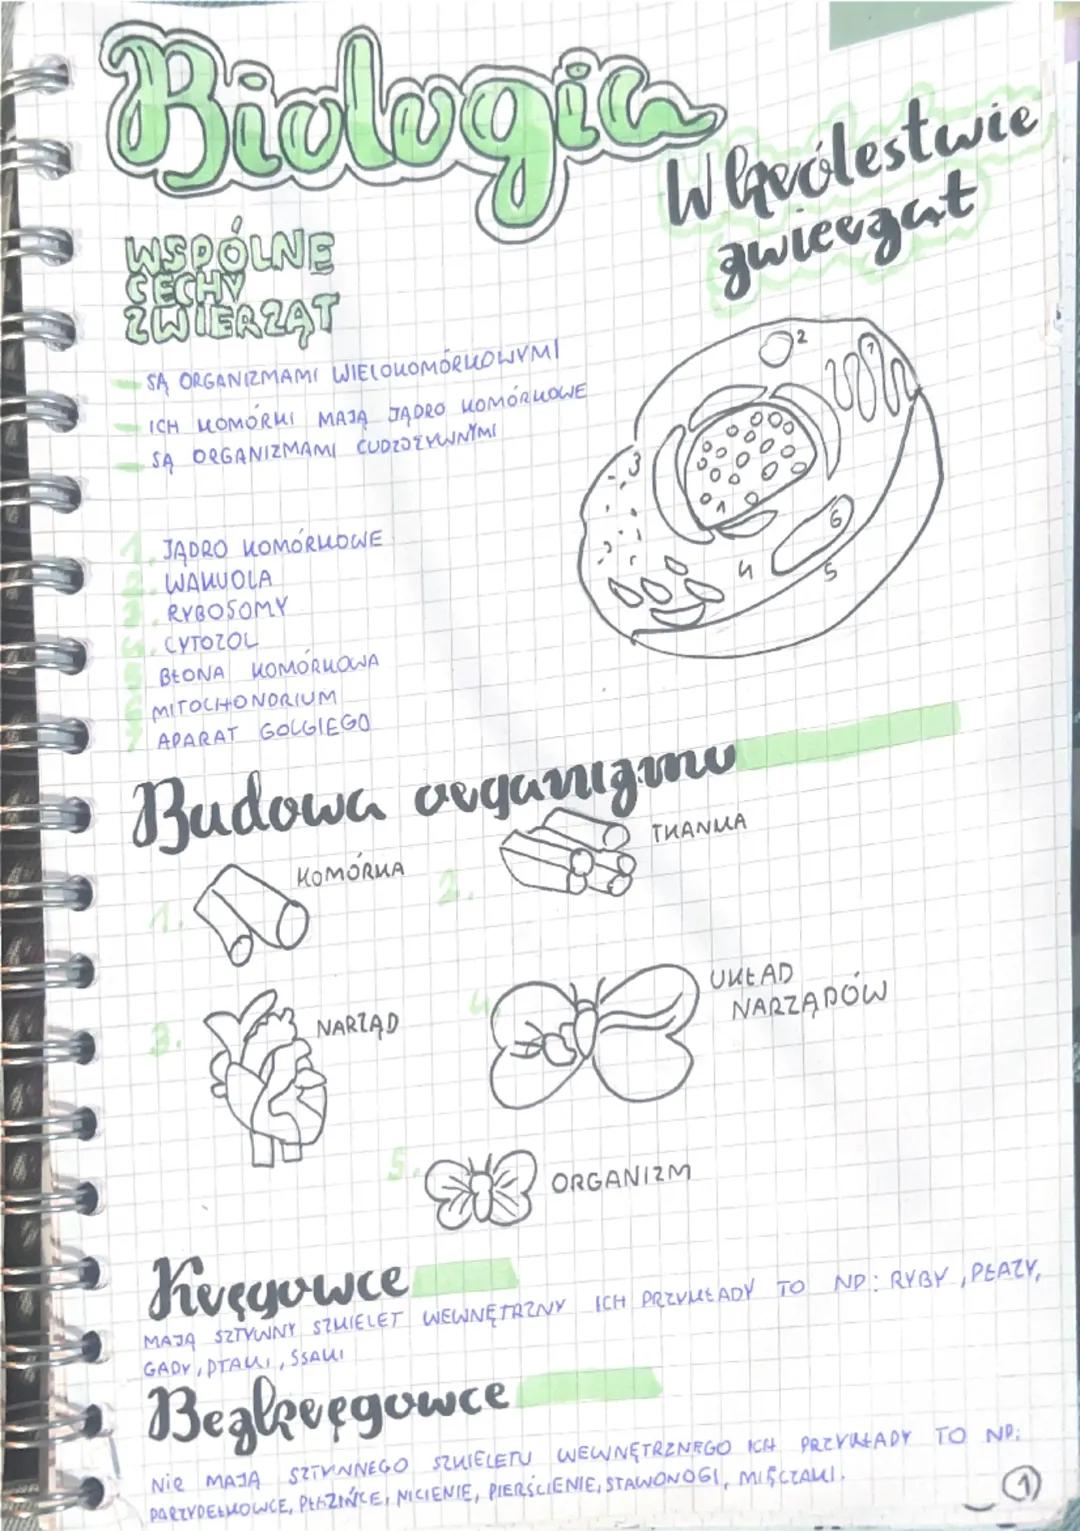 Biologia
W królestwie
zwierząt
WSPÓLNE
CECHY
ZWIERZĄT
SĄ ORGANIZMAMI WIELOKOMÓRKOWYMI
ICH KOMÓRKI MAJĄ JĄDRO KOMÓRKOWE
SĄ ORGANIZMAMI CUDZOŻYWNYMI
2
7
3
1
6
4
5
1. JĄDRO KOMÓRKOWE
2. WAKUOLA
3. RYBOSOMY
4. CYTOZOL
5. BŁONA KOMÓRKOWA
6. MITOCHONDRIUM
7. APARAT GOLGIEGO
Budowa organizmu
1. KOMÓRKA
2. TKANKA
3. NARZĄD
4. UKŁAD
NARZĄDÓW
5. ORGANIZM
Kręgowce
MAJĄ SZTYWNY SZKIELET WEWNĘTRZNY ICH PRZYKŁADY TO NP: RYBY, PŁAZY,
GADY, PTAKI, SSAKI
Bezkręgowce
NIE MAJĄ SZTYNNEGO SZKIELETU WEWNĘTRZNEGO ICH PRZYKŁADY TO NP:
PARZYDEŁKOWCE, PŁAZIŃCE, NICIENIE, PIERŚCIENIE, STAWONOGI, MIĘCZAKI.
1